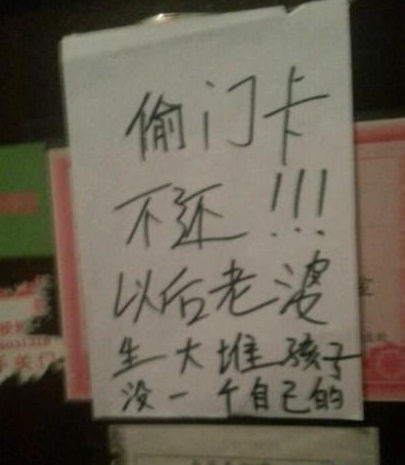 偷门卡
不还!!!
以后老婆
生大堆孩子
没一个自己的